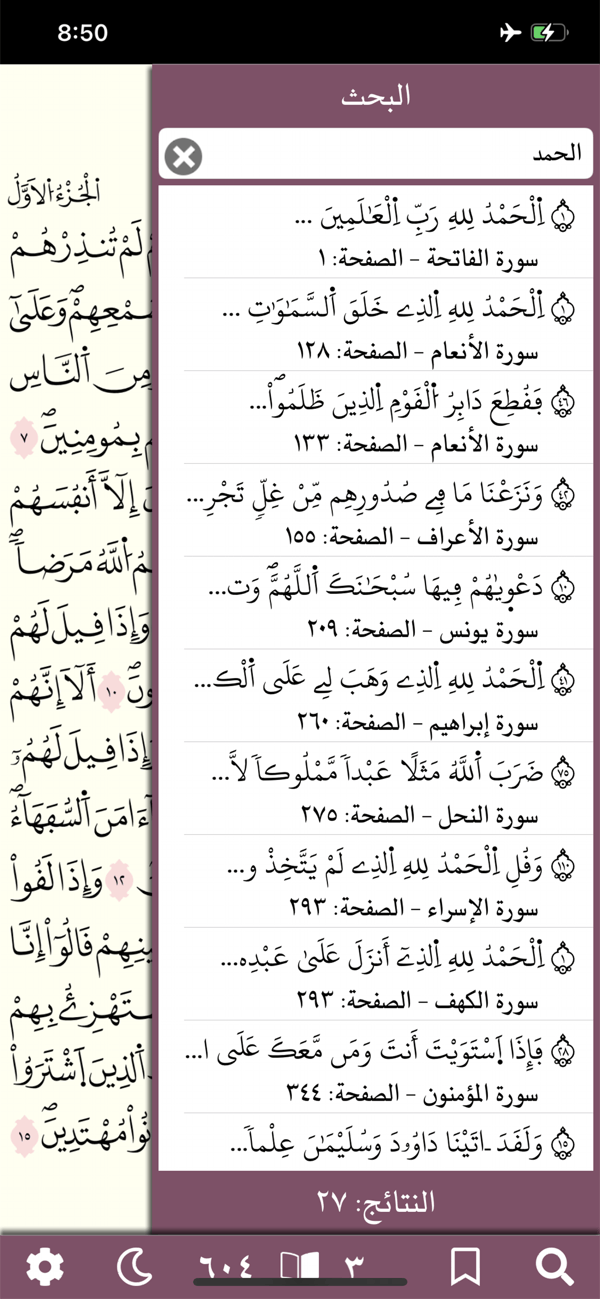 8:50
البحث
الحمد
١ اِ۬لْحَمْدُ لِلهِ رَبِّ اِ۬لْعَٰلَمِينَ ...
سورة الفاتحة - الصفحة: ١
١ اِ۬لْحَمْدُ لِلهِ اِ۬لذِے خَلَقَ اَ۬لسَّمَٰوَٰتِ ...
سورة الأنعام - الصفحة: ١٢٨
٤٦ فَقُطِعَ دَابِرُ اُ۬لْقَوْمِ اِ۬لذِينَ ظَلَمُواْۖ...
سورة الأنعام - الصفحة: ١٣٣
٤٢ وَنَزَعْنَا مَا فِے صُدُورِهِم مِّنْ غِلّٖ تَجْرِ...
سورة الأعراف - الصفحة: ١٥٥
١٠ دَعْوٜيٰهُمْ فِيهَا سُبْحَٰنَكَ اَ۬للَّهُمَّۖ وَت...
سورة يونس - الصفحة: ٢٠٩
٤١ اِ۬لْحَمْدُ لِلهِ اِ۬لذِے وَهَبَ لِے عَلَى اَ۬لْڪ...
سورة إبراهيم - الصفحة: ٢٦٠
٧٥ ضَرَبَ اَ۬للَّهُ مَثَلًا عَبْداٗ مَّمْلُوكاٗ لاَّ...
سورة النحل - الصفحة: ٢٧٥
١١٠ وَقُلِ اِ۬لْحَمْدُ لِلهِ اِ۬لذِے لَمْ يَتَّخِذْ و...
سورة الإسراء - الصفحة: ٢٩٣
١ اِ۬لْحَمْدُ لِلهِ اِ۬لذِےٓ أَنزَلَ عَلَىٰ عَبْدِه...
سورة الكهف - الصفحة: ٢٩٣
٢٨ فَإِذَا اَ۪سْتَوَيْتَ أَنتَ وَمَن مَّعَكَ عَلَى ا...
سورة المؤمنون - الصفحة: ٣٤٤
١٥ وَلَقَدَ اٰتَيْنَا دَاوُۥدَ وَسُلَيْمَٰنَ عِلْماٗ...
النتائج: ٢٧
٣ ٦٠٤
اَ۬لْجُزْءُ اُ۬لَاوَّلُ
لَمْ تُنذِرْهُمْ
سَمْعِهِمْۖ وَعَلَىٰٓ
مِنَ اَ۬لنَّاسِ
بِمُومِنِينَۖ ٧
إِلَّآ أَنفُسَهُمْ
اُ۬للَّهُ مَرَضاٗۖ
وَإِذَا قِيلَ لَهُمْ
١٠ أَلَآ إِنَّهُمْ
وَإِذَا قِيلَ لَهُمُۥٓ
ءَامَنَ اَ۬لسُّفَهَآءُۖ
١٢ وَإِذَا لَقُواْ
قَالُوٓاْ إِنَّا
يَسْتَهْزِۓُ بِهِمْ
اَ۬لذِينَ اَ۪شْتَرَوُاْ
مُهْتَدِينَۖ ١٥